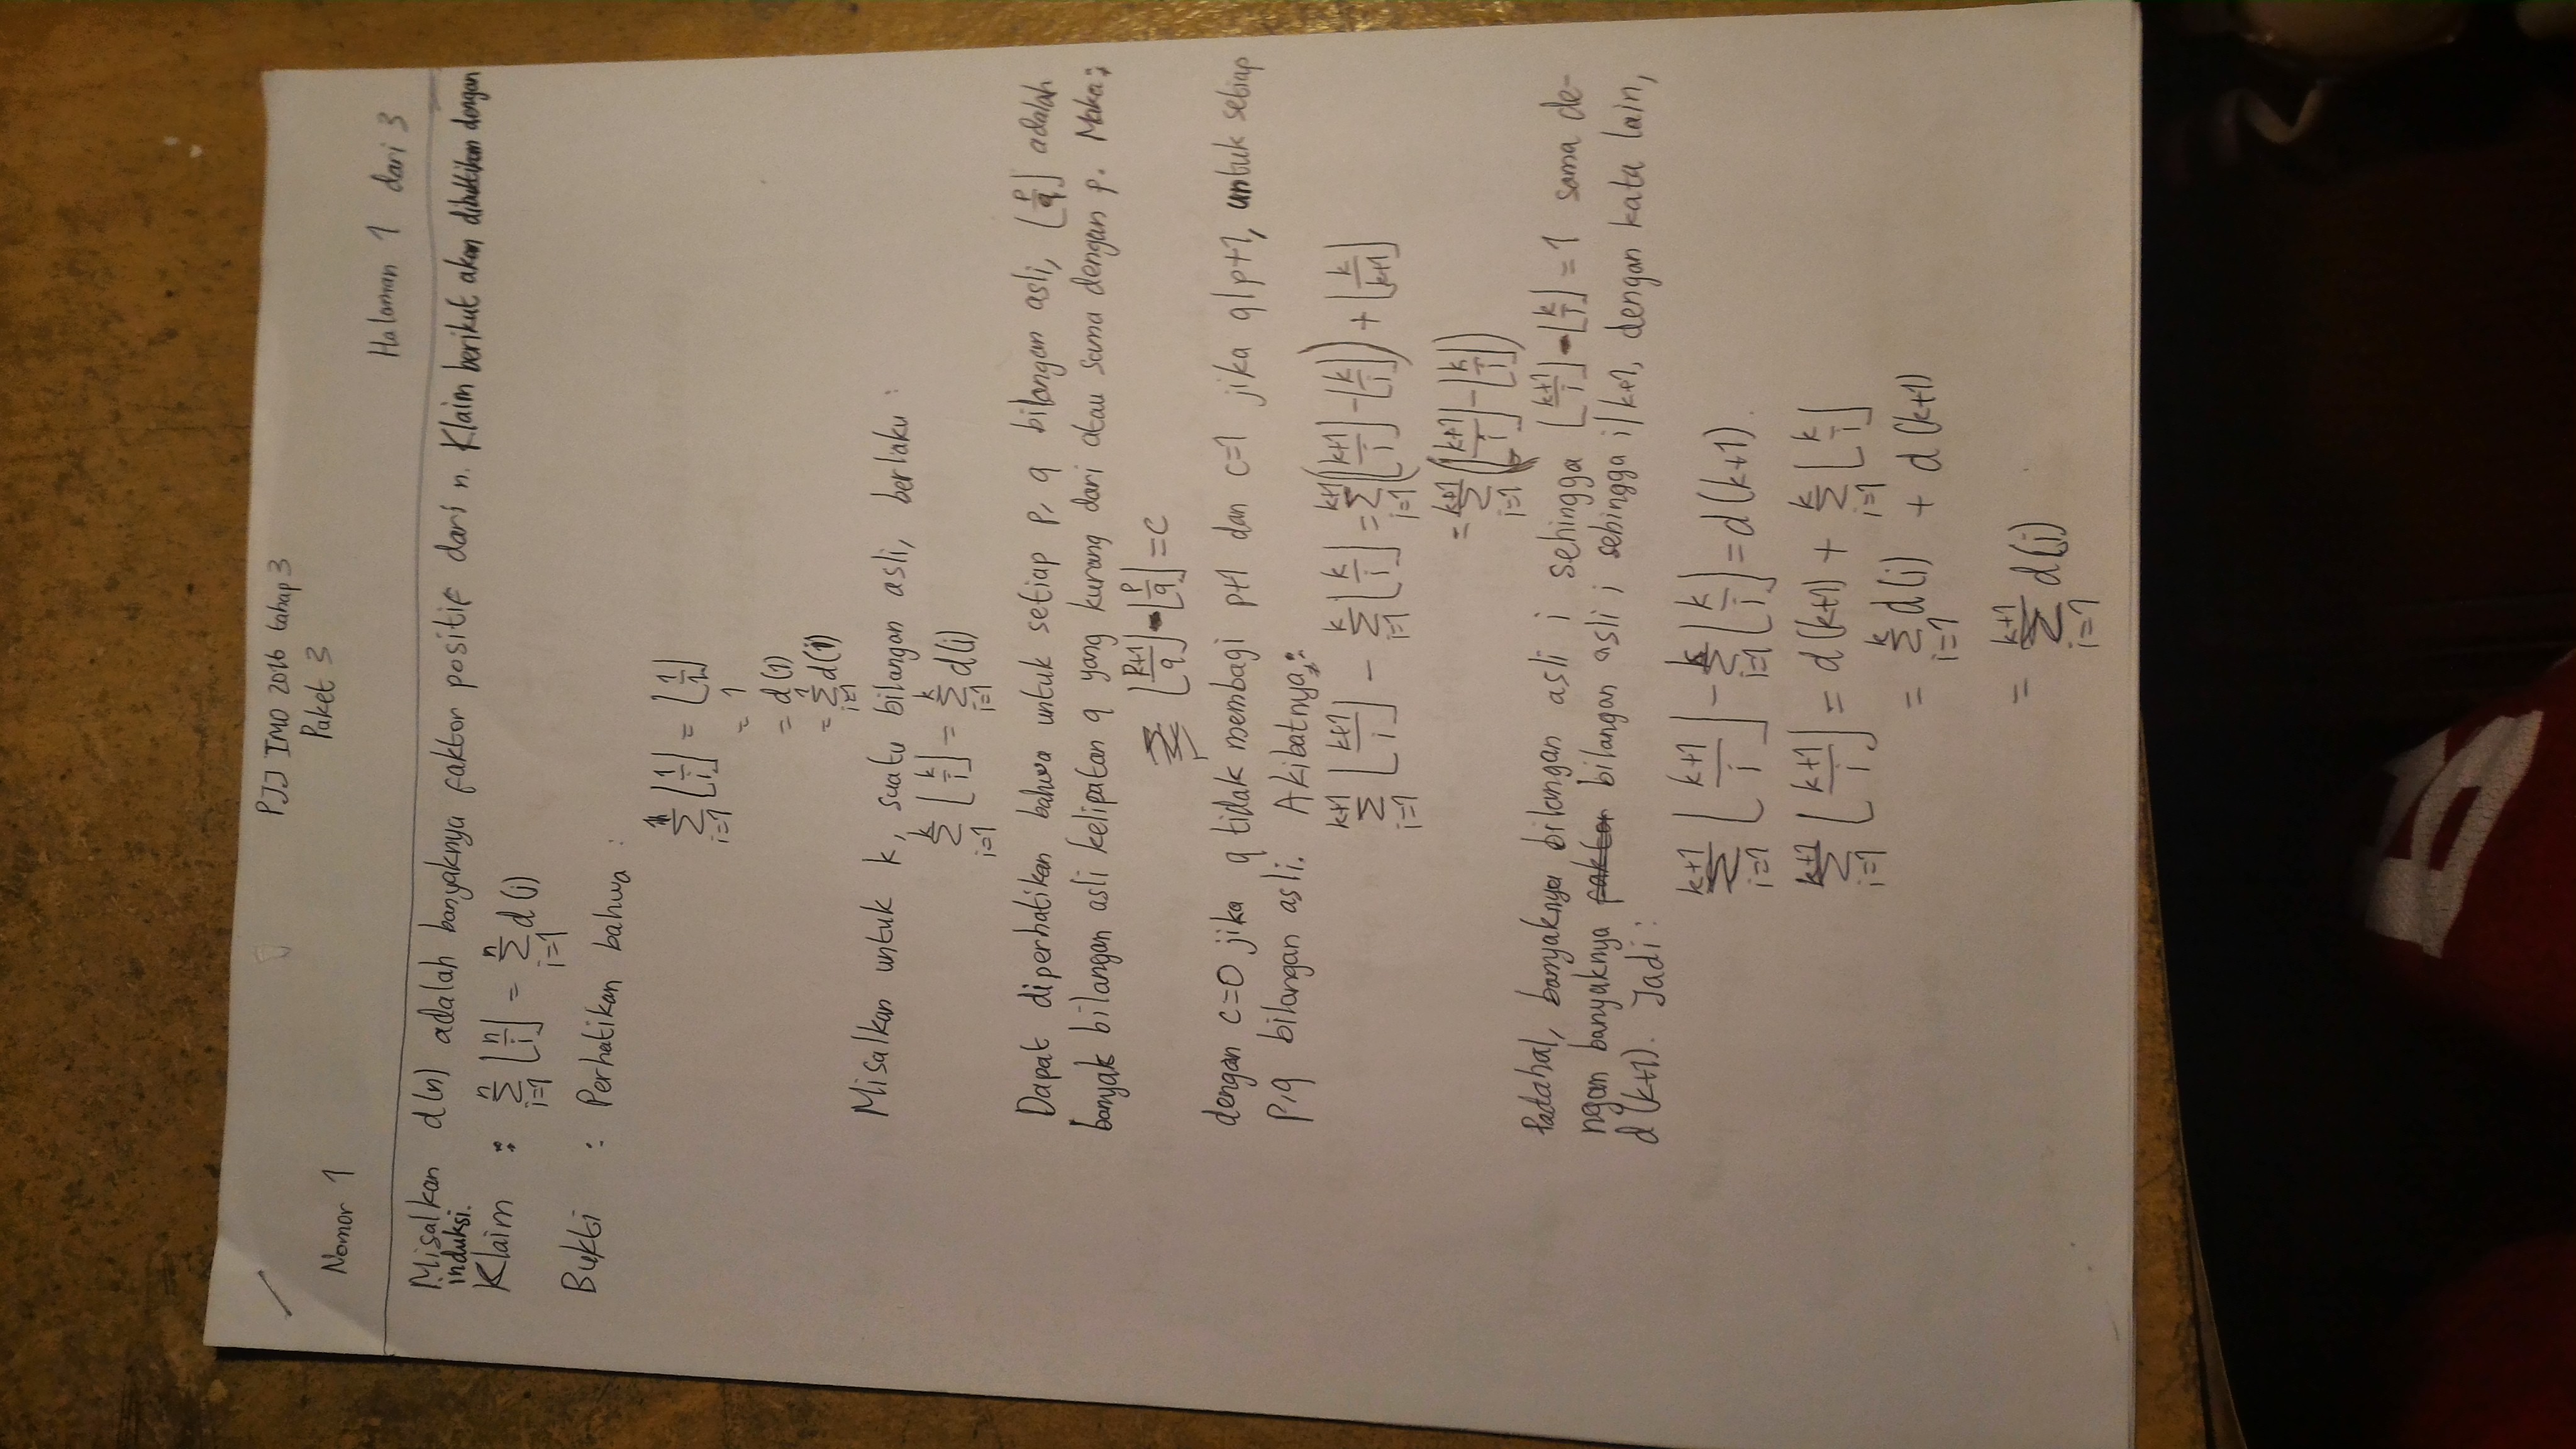 PJJ IMO 2016 tahap 3
Paket 3
Nomor 1
Halaman 1 dari 3
Misalkan d(n) adalah banyaknya faktor positif dari n. Klaim berikut akan dibuktikan dengan
induksi.
Klaim : ∑_{i=1}^{n} ⌊n/i⌋ = ∑_{i=1}^{n} d(i)
Bukti : Perhatikan bahwa :
∑_{i=1}^{1} ⌊1/i⌋ = ⌊1/1⌋
= 1
= d(1)
= ∑_{i=1}^{1} d(i)
Misalkan untuk k, suatu bilangan asli, berlaku :
∑_{i=1}^{k} ⌊k/i⌋ = ∑_{i=1}^{k} d(i)
Dapat diperhatikan bahwa untuk setiap p, q bilangan asli, ⌊p/q⌋ adalah
banyak bilangan asli kelipatan q yang kurang dari atau sama dengan p. Maka :
⌊(p+1)/q⌋ - ⌊p/q⌋ = c
dengan c=0 jika q tidak membagi p+1 dan c=1 jika q|p+1, untuk setiap
p,q bilangan asli. Akibatnya :
∑_{i=1}^{k+1} ⌊(k+1)/i⌋ - ∑_{i=1}^{k} ⌊k/i⌋ = ∑_{i=1}^{k+1} (⌊(k+1)/i⌋ - ⌊k/i⌋) + ⌊k/(k+1)⌋
= ∑_{i=1}^{k+1} (⌊(k+1)/i⌋ - ⌊k/i⌋)
Padahal, banyaknya bilangan asli i sehingga ⌊(k+1)/i⌋ - ⌊k/i⌋ = 1 sama de-
ngan banyaknya bilangan asli i sehingga i|k+1, dengan kata lain,
d(k+1). Jadi :
∑_{i=1}^{k+1} ⌊(k+1)/i⌋ - ∑_{i=1}^{k} ⌊k/i⌋ = d(k+1).
∑_{i=1}^{k+1} ⌊(k+1)/i⌋ = d(k+1) + ∑_{i=1}^{k} ⌊k/i⌋
= ∑_{i=1}^{k} d(i) + d(k+1)
= ∑_{i=1}^{k+1} d(i)